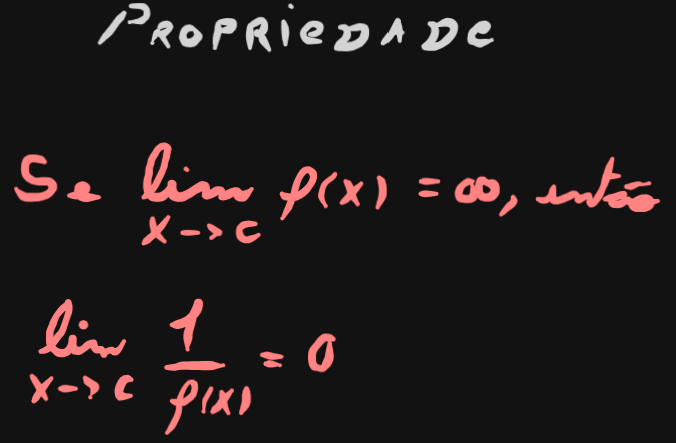 PROPRIEDADE
Se lim f(x) = ∞, então
x->c
lim 1
x->c f(x) = 0